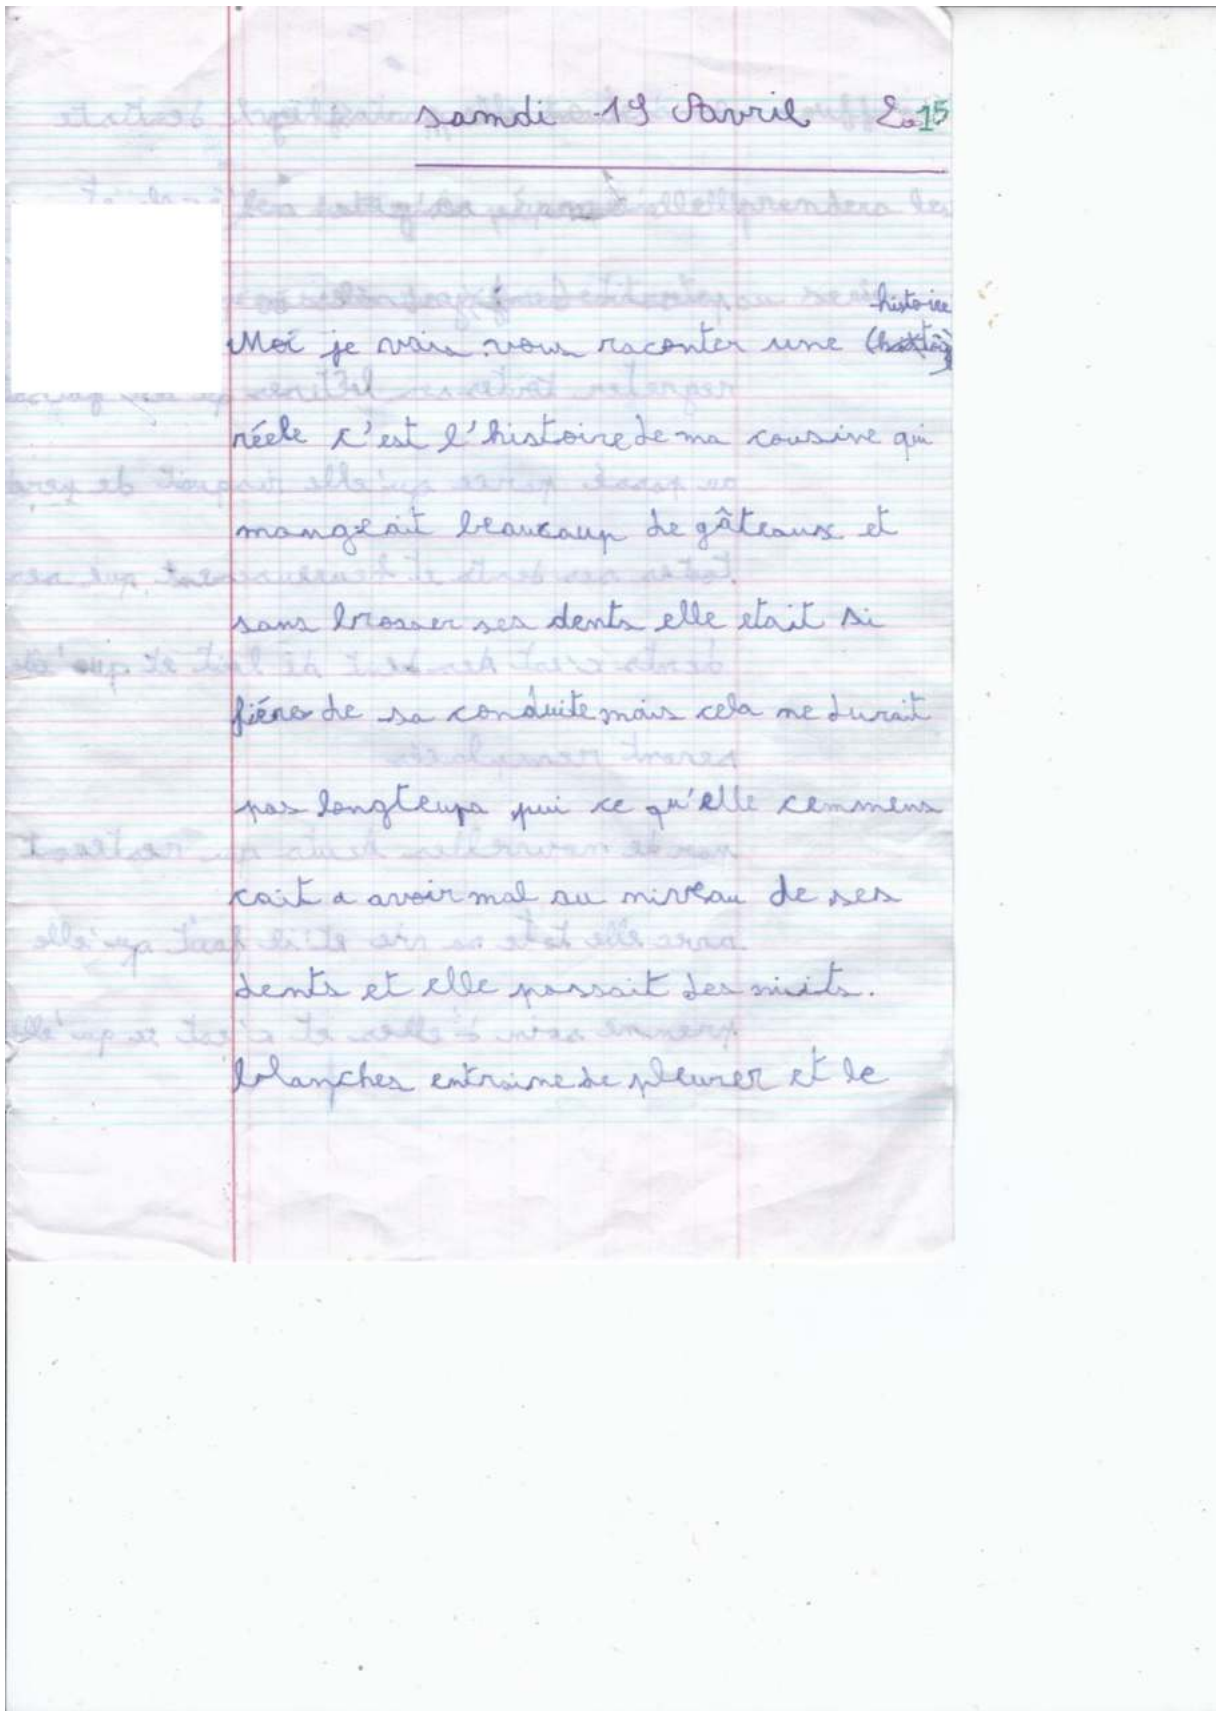 samdi 19 Avril 2015
histoire
Moi je vais vous raconter une
réele c'est l'histoire de ma cousine qui
mangeait beaucoup de gâteaux et
sans brosser ses dents elle etait si
fiére de sa conduite mais cela ne durait
pas longtemps pui ce qu'elle commens
cait a avoir mal au niveau de ses
dents et elle passait des nuits.
blanches entraine de pleurer et le